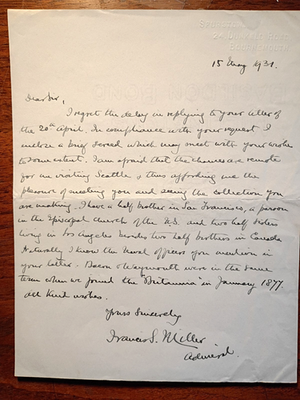 15 May 1931.
Dear Sir,
I regret the delay in replying to your letter of
the 20th April. In compliance with your request I
enclose a brief record which may meet with your wishes
to some extent. I am afraid that the chances are remote
for me visiting Seattle & thus affording me the
pleasure of meeting you and seeing the collection you
are making. I have a half brother in San Francisco, a parson
in the Episcopal Church of the U.S. and two half sisters
living in Los Angeles besides two half brothers in Canada
Naturally I know the Naval officers you mention in
your letter. Bacon & Waymouth were in the same
term when we joined the "Britannia" in January 1877.
All kind wishes.
Yours Sincerely
Francis S. Miller
Admiral.